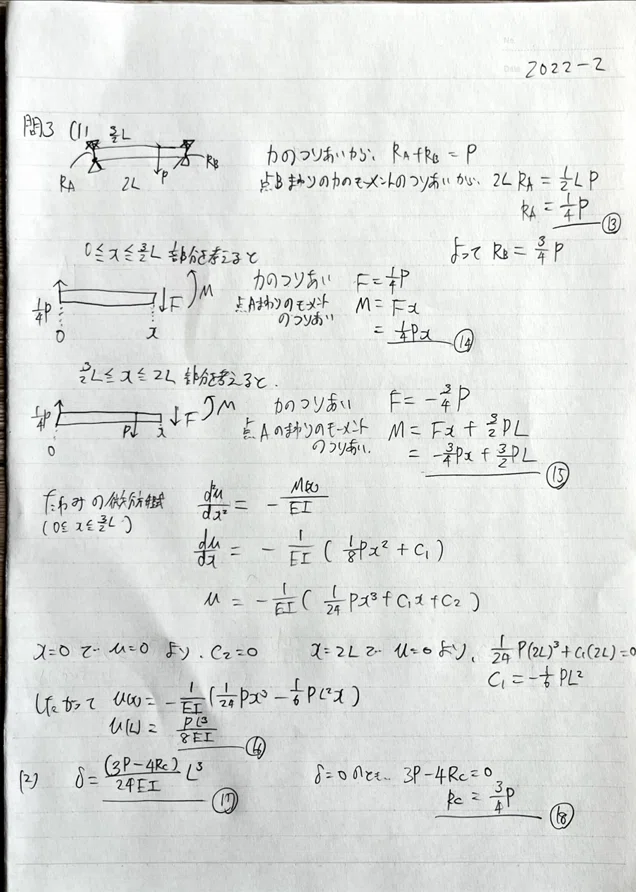 2022-2
問3 (1)
3/2 L
RA 2L P RB
力のつりあいから、 RA+RB = P
点Bまわりの力のモーメントのつりあいから、 2L RA = 1/2 L P
RA = 1/4 P ⑬
よって RB = 3/4 P
0≦x≦3/2 L 部分を考えると
1/4 P 0 x F M
力のつりあい F = 1/4 P
点Aまわりのモーメント M = Fx
のつりあい = 1/4 Px ⑭
3/2 L≦x≦2L 部分を考えると.
1/4 P 0 P x F M
力のつりあい F = -3/4 P
点Aのまわりのモーメント M = Fx + 3/2 PL
のつりあい. = -3/4 Px + 3/2 PL ⑮
たわみの微分方程式 d²u/dx² = - M(x)/EI
(0≦x≦3/2 L)
du/dx = - 1/EI ( 1/8 Px² + C1 )
u = - 1/EI ( 1/24 Px³ + C1x + C2 )
x=0で u=0 より、C2=0 x=2Lで u=0より、 1/24 P(2L)³+C1(2L)=0
C1 = -1/6 PL²
したがって u(x) = - 1/EI ( 1/24 Px³ - 1/6 PL²x )
u(L) = PL³/8EI ⑯
(2) δ = (3P-4Rc)/24EI L³ ⑰ δ=0のとき、 3P-4Rc=0
Rc = 3/4 P ⑱